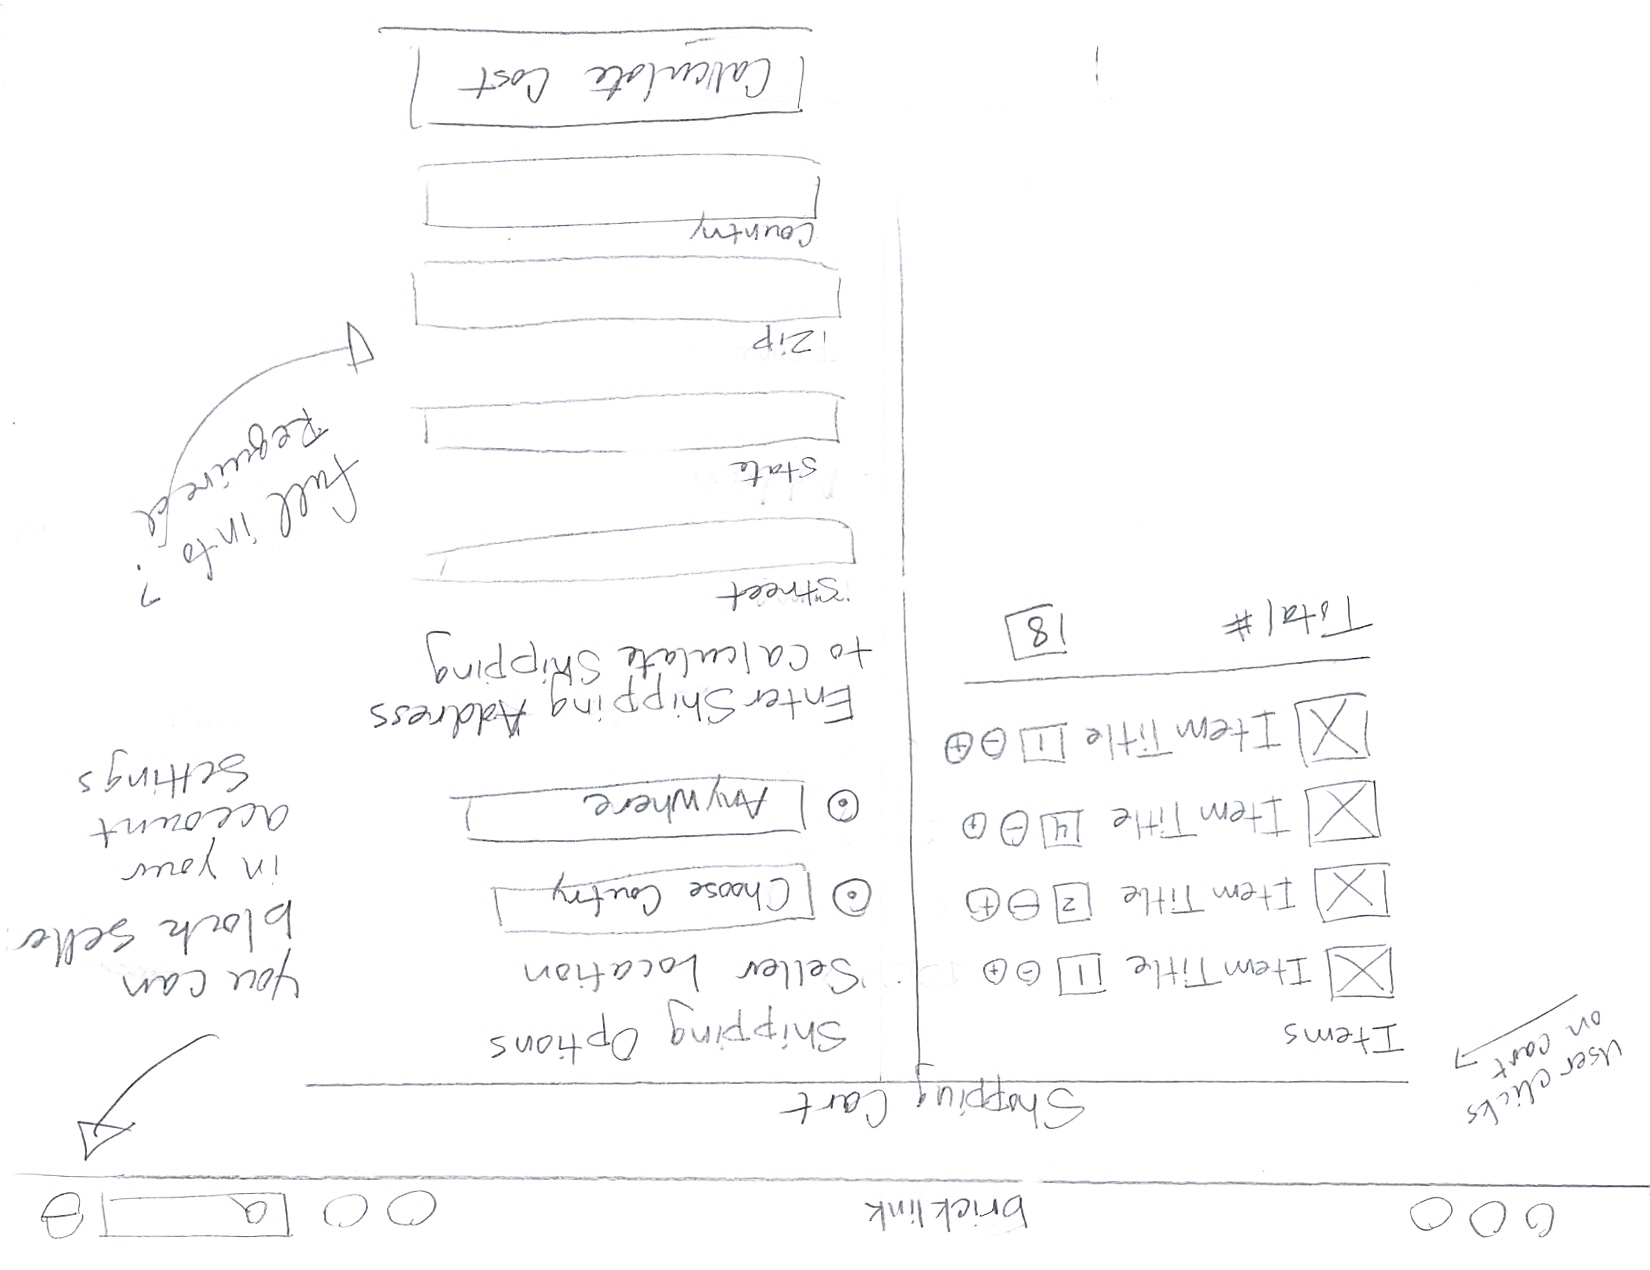 bricklink
a
Shopping Cart
User clicks
on cart
Items
Item Title 1 - +
Item Title 2 - +
Item Title 4 - +
Item Title 1 - +
Total # 8
Shipping Options
Seller Location
Choose Coutry
Anywhere
Enter Shipping Address
to Calculate Shipping
Street
State
Zip
Country
Calculate Cost
You can
block seller
in your
account
Settings
full info?
Required